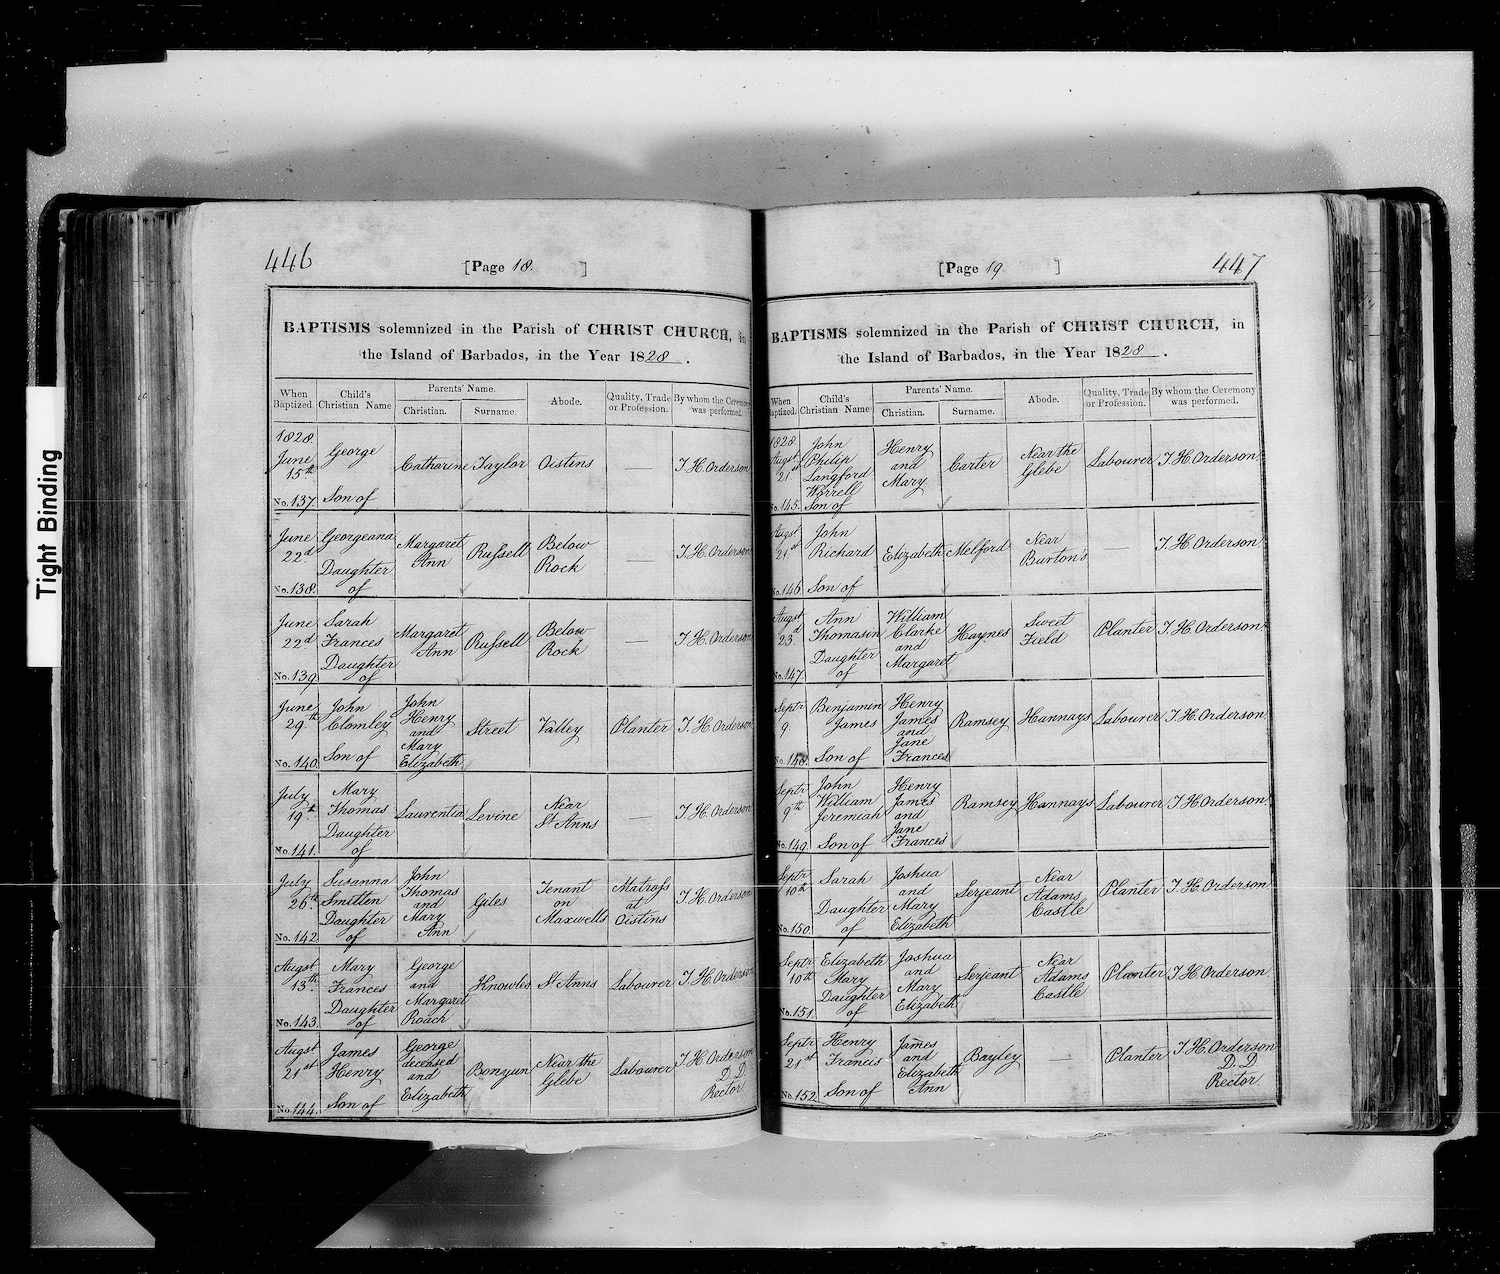 Tight Binding
446
[Page 18. ]
BAPTISMS solemnized in the Parish of CHRIST CHURCH, in
the Island of Barbados, in the Year 1828.
When Baptized. Child's Christian Name Parents' Name. Christian. Surname. Abode. Quality, Trade or Profession. By whom the Ceremony was performed.
1828. June 15th No. 137. George Son of Catharine Taylor Oistins — T. H. Orderson
June 22d No. 138. Georgeana Daughter of Margaret Ann Russell Below Rock — T. H. Orderson
June 22d No. 139. Sarah Frances Daughter of Margaret Ann Russell Below Rock — T. H. Orderson
June 29th No. 140. John Clomley Son of John Henry and Mary Elizabeth Street Valley Planter T. H. Orderson
July 19th No. 141. Mary Thomas Daughter of Laurentia Levine Near St Anns — T. H. Orderson
July 26th No. 142. Susanna Smitten Daughter of John Thomas and Mary Ann Giles Tenant on Maxwells Matross at Oistins T. H. Orderson
Augst 13th No. 143. Mary Frances Daughter of George and Margaret Roach Knowles St Anns Labourer T. H. Orderson
Augst 21st No. 144. James Henry Son of George deceased and Elizabeth Bonyun Near the Glebe Labourer T. H. Orderson D. D. Rector
447
[Page 19 ]
BAPTISMS solemnized in the Parish of CHRIST CHURCH, in
the Island of Barbados, in the Year 1828.
When Baptized. Child's Christian Name Parents' Name. Christian. Surname. Abode. Quality, Trade or Profession. By whom the Ceremony was performed.
1828 Augst 21st No. 145. John Philip Langford Worrell Son of Henry and Mary Carter Near the Glebe Labourer T. H. Orderson
Augst 21st No. 146 John Richard Son of Elizabeth Melford Near Burton's — T. H. Orderson
Augst 23d No. 147. Ann Thomasin Daughter of William Clarke and Margaret Haynes Sweet Field Planter T. H. Orderson
Septr 9. No. 148. Benjamin James Son of Henry James and Jane Frances Ramsey Hannays Labourer T. H. Orderson
Septr 9th No. 149. John William Jeremiah Son of Henry James and Jane Frances Ramsey Hannays Labourer T. H. Orderson
Septr 10th No. 150. Sarah Daughter of Joshua and Mary Elizabeth Serjeant Near Adams Castle Planter T. H. Orderson
Septr 10th No. 151 Elizabeth Mary Daughter of Joshua and Mary Elizabeth Serjeant Near Adams Castle Planter T. H. Orderson
Septr 21st No. 152. Henry Francis Son of James and Elizabeth Ann Bayley — Planter T. H. Orderson D. D. Rector